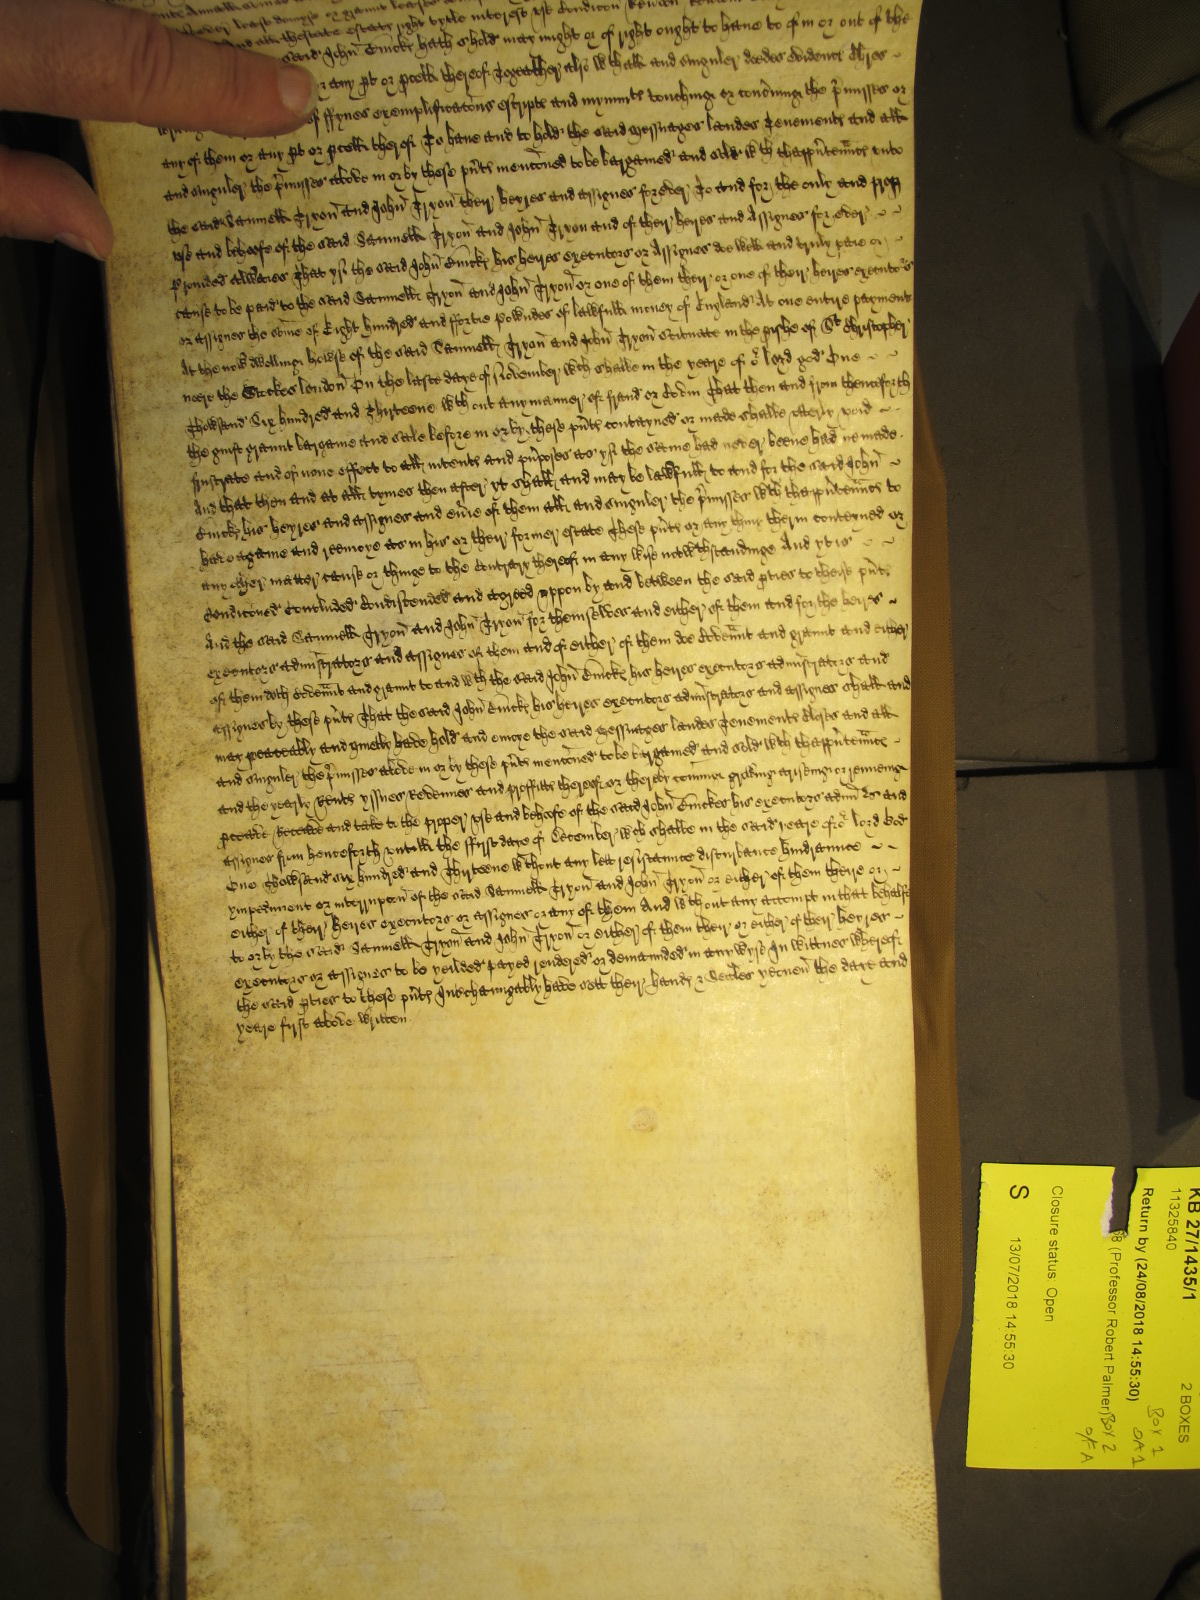 said John Emick hath shold may might or of right ought to have to from or out of the
or any pt or pcell thereof Together also wth all and singuler deedes evidence
of ffynes exemplificacons escripts and mynimts touching or concrning the pmisses or
any of them or any pt or pcell therof To have and to hold the said messuages landes Tenements and all
and singuler the pmisses above in or by these pnts menconed to be bargained and sold wth thapprtennces unto
the said Samuell Tryon and John Tryon their heyres and assignes for ever To and for the only and prop
use and behoofe of the said Samuell Tryon and John Tryon and of their heyres and Assignes for ever
Provided allwaies That yf the said John Emick his heyres executors or Assignes doe well and truly paie or
cause to be paid to the said Samuell Tryon and John Tryon or one of them their or one of their heyres executors
or assignes the some of Eight hundred and ffortie Powndes of lawfull money of England At one entire payment
At the now dwelling howse of the said Samuell Tryon and John Tryon scituate in the pishe of St Christopher
neere the Stockes london On the laste daye of November wch shalbe in the yeare of or lord god One
Thowsand Six hundred and Thirteene wth out any manner of fraud or Covin That then and from thenceforth
the guift graunt bargaine and sale before in or by these pnts contayned or made shalbe utterly void
frustrate and of none effect to all intents and purposes as yf the same had never beene had ne made
And that then and at all tymes then after yt shall and may be lawfull to and for the said John
Emick his heyres and assignes and evrie of them all and singuler the pmisses wth thapprtennces to
have againe and reenioye as in his or their former estate These pnts or any thing therin conteyned or
any other matter cause or thinge to the Contrary thereof in any wise notwthstandinge And yt is
Condiconed Concluded Condiscended and agreed uppon by and between the said pties to these pnts
And the said Samuell Tryon and John Tryon for themselves and either of them and for the heyrs
executors administrators and assignes of them and of either of them doe Covennt and graunt and either
of them doth covennt and graunt to and wth the said John Emick his heyres executors administrators and
assignes by these pnts That the said John Emick his heyres executors administrators and assignes shall and
may peaceably and quietly have hold and enioye the said messuages landes Tenements Closes and all
and singuler the pmisses above in or by these pnts menconed to be bargained and sold wth thapprtennces
and the yearly Rents yssues Revenues and proffitts thereof or thereby coming groking ariseing or reneinge
pceave Receave and take to the proper use and behoofe of the said John Emickes his executors admrs and
assignes from henceforth untill the ffirst daye of December wch shalbe in the said yeare of or lord God
One Thowsand six hundred and Thirteene wthout any lett resistance disturbance hindrannce
ympediment or interrupcon of the said Samuell Tryon and John Tryon or either of them theire or
either of their heyres executors or assignes or any of them And wthout any attempt in that behalfe
to or by the said Samuell Tryon and John Tryon or either of them their or either of their heyres
executors or assignes to be yeilded payed rendered or demaunded in any wyse In wittnes whereof
the said pties to these pnts Interchangably have sett their hands & Seales yeouen the daye and
yeare first above written
KB 27/1435/1
11325840
2 BOXES
Return by (24/08/2018 14:55:30)
(Professor Robert Palmer)
BOX 1
BOX 2
Closure status Open
S
13/07/2018 14:55:30